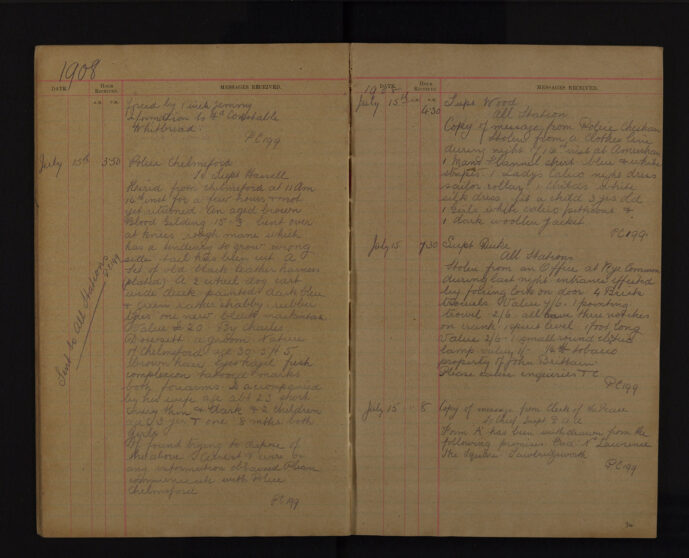 1908
DATE. HOUR RECEIVED. MESSAGES RECEIVED.
A.M. P.M.
forced by 1 inch jemmy
Information to Hd Constable
PC199
July 15th 3:30 Police Chelmsford
To Supt
Hired from Chelmsford at 11 Am
14th inst for a few hours & not
yet returned An aged brown
Blood Gelding 15-3 bent over
at knees rough mane which
has a tendency to grow wrong
side tail has been cut A
Set of old black leather harness
plated A 2 wheel dog cart
dark painted dark blue
& green rather shabby rubber
tyres one new black
Value £20 By Charles
a groom Native
of Chelmsford age 30 5 ft 5
brown hair Eyes hazel fresh
complexion tattooed marks
both forearms Is accompanied
by his wife age abt 23 short
very thin & dark & 2 children
age 3 yrs & one 8 mths both
Girls
If found trying to dispose of
the above & wire or
any information obtained Please
communicate with Police
Chelmsford
PC 199
Sent to All Stations
PC 199
1908
DATE. HOUR RECEIVED. MESSAGES RECEIVED.
July 15th 4:30 Supt Wood
All Station
Copy of message from Police Chesham
Stolen from a clothes line
during night 14th inst at
1 Mans Flannel shirt blue & white
stripes. 1 Ladys Calico night dress
sailor collar. 1 Childs white
silk dress. fit a child 3 yrs old
1 Girls white calico &
1 Dark woollen Jacket
PC199
July 15 7.30 Supt Duke
All Stations
Stolen from an Office at Rye Common
during last night entrance effected
by forcing lock on door 4 Brick
Trowels Value 4/6. 1 pointing
trowel 2/6 all have three notches
on crank 1 spirit level 1 foot long
Value 2/6. 1 small round
lamp value 1/- tobacco
property of John
Please cause enquiries T C
PC199
July 15 8 Copy of message from Clerk of the Peace
to Chief Supt
Form K has been withdrawn from the
following premises Lawrence
The Sawbridgeworth
PC199